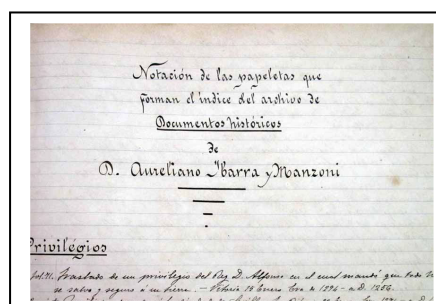 Notación de las papeletas que
forman el índice del archivo de
Documentos históricos
de
D. Aureliano Ibarra y Manzoni
Privilégios
Traslado de un privilegio del Rey D. Alfonso en el cual mandó que todo
se salvo y seguro á su tierra. — Vitoria 18 Enero Era de 1294 - a.D. 1256.